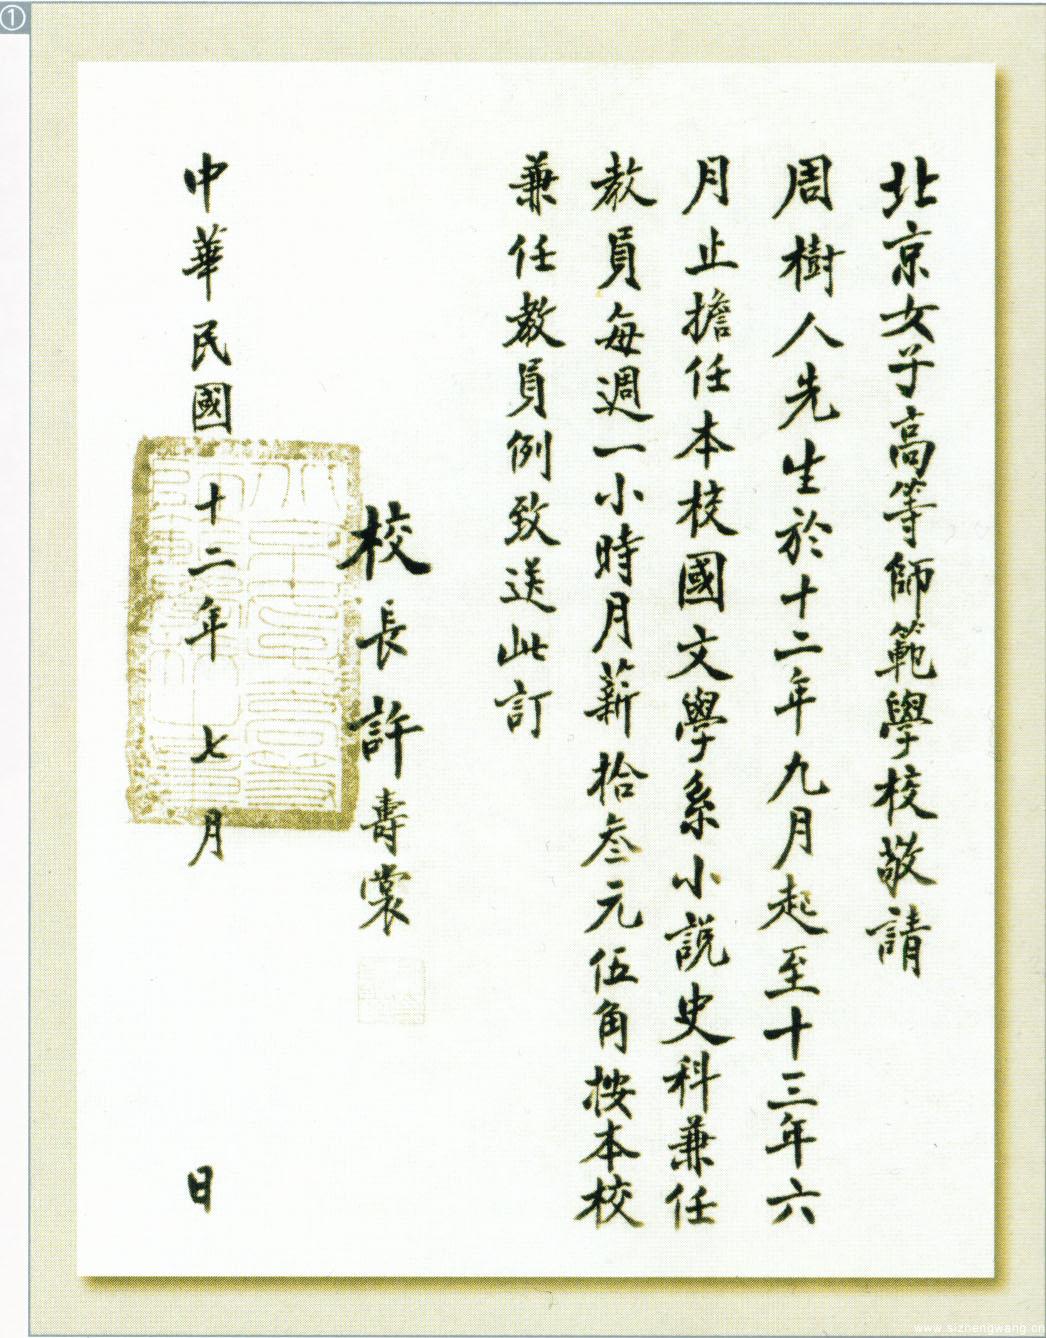 ①
北京女子高等師範學校敬請
周樹人先生於十二年九月起至十三年六
月止擔任本校國文學系小説史科兼任
教員每週一小時月薪拾叁元伍角按本校
兼任教員例致送此訂
校長許壽裳
中華民國十二年七月 日
www.sizhengwang.cn